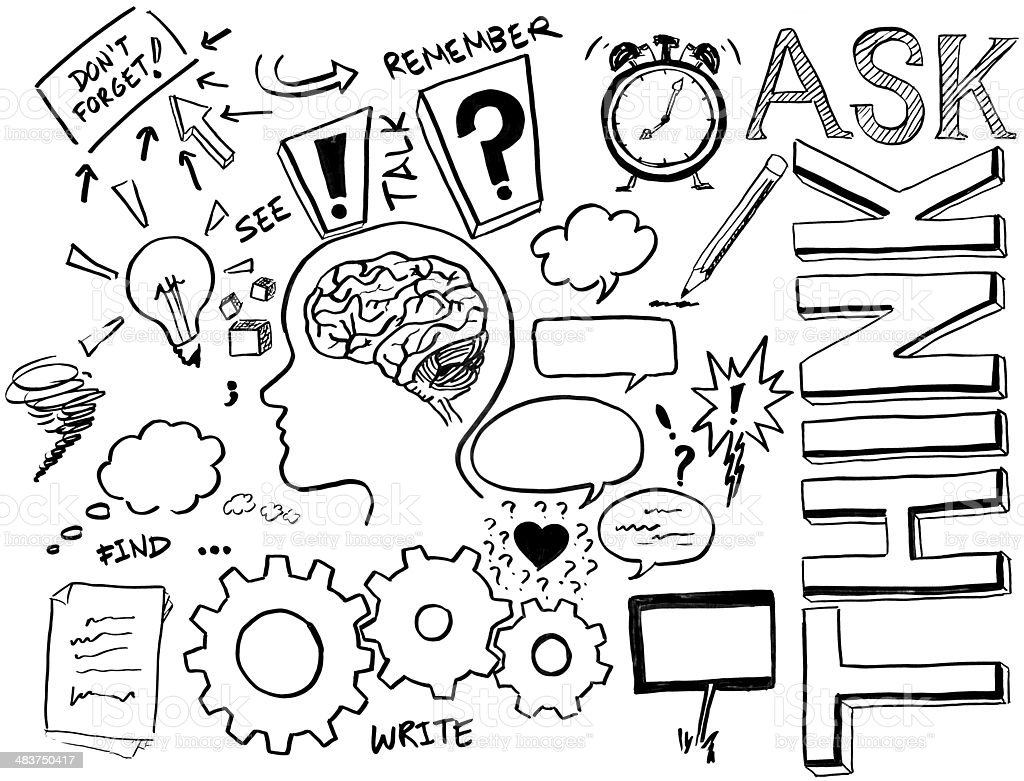 DON'T
FORGET!
REMEMBER
ASK
!
TALK
?
SEE
THINK
;
!
!
?
FIND ...
WRITE
iStock
by Getty Images™
483750417